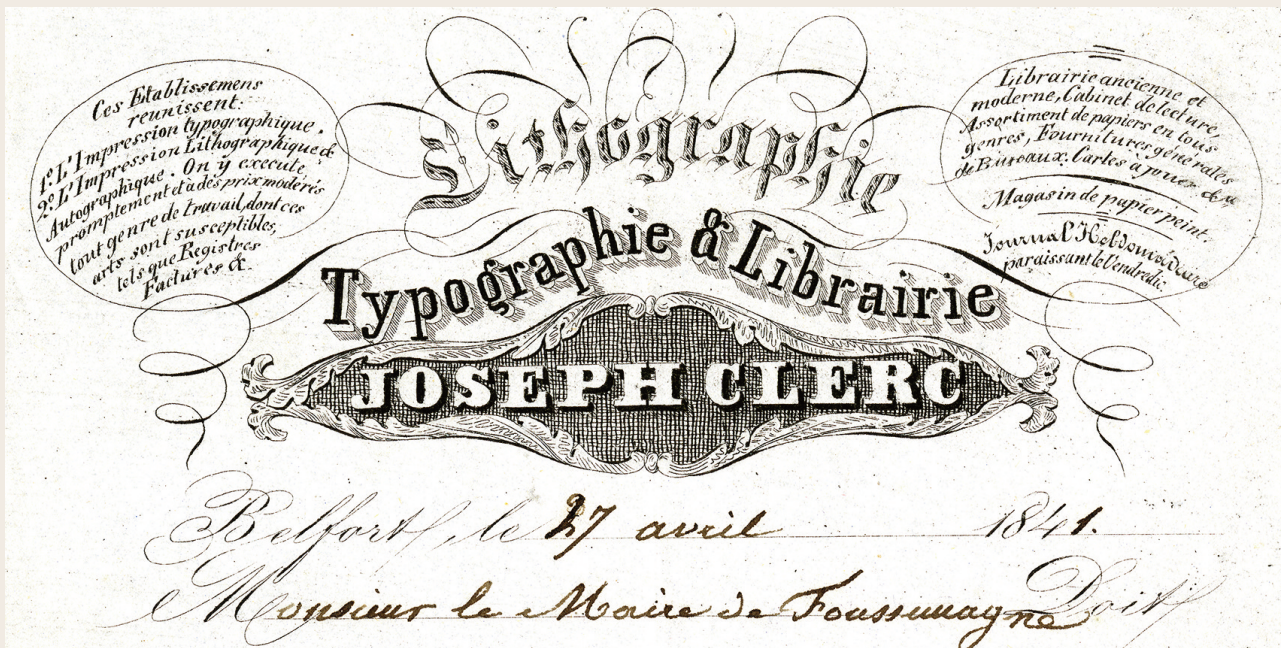 Ces Etablissemens
reunissent:
1º L'Impression typographique.
2º L'Impression Lithographique &
Autographique. On y execute
promptement et à des prix modérés
tout genre de travail, dont ces
arts sont susceptibles,
tels que Registres
Factures &.
Lithographie
Typographie & Librairie
JOSEPH CLERC
Librairie ancienne et
moderne, Cabinet de lecture,
Assortiment de papiers en tous
genres, Fournitures générales
de Bureaux, Cartes à jouer &a
Magasin de papier peint.
Journal Hebdomadaire
paraissant le Vendredi
Belfort, le 27 avril 1841.
Monsieur le Maire de Foussemagne Doit